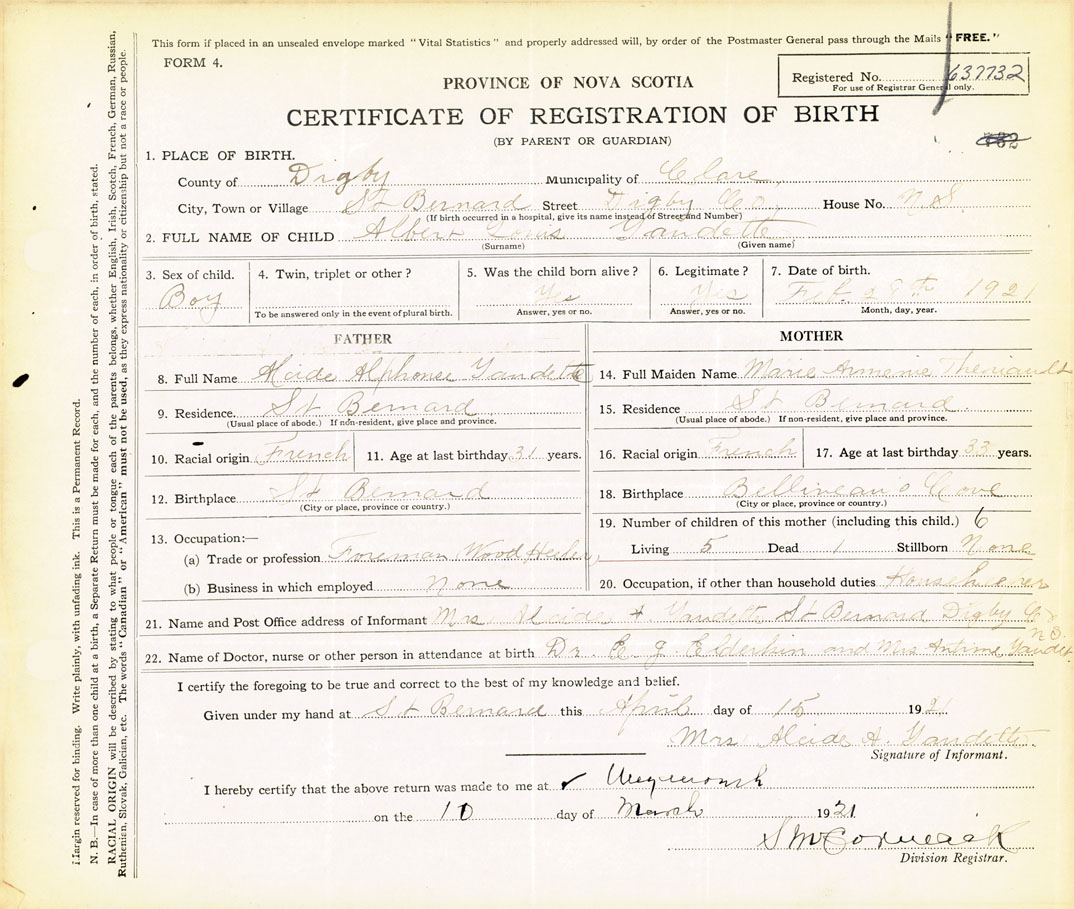 This form if placed in an unsealed envelope marked "Vital Statistics" and properly addressed will, by order of the Postmaster General pass through the Mails "FREE."
FORM 4.
PROVINCE OF NOVA SCOTIA
Registered No. 637732
For use of Registrar General only.
CERTIFICATE OF REGISTRATION OF BIRTH
(BY PARENT OR GUARDIAN)
1. PLACE OF BIRTH.
County of Digby Municipality of Clare
City, Town or Village St Bernard Street Digby Co. House No. N.S.
(If birth occurred in a hospital, give its name instead of Street and Number)
2. FULL NAME OF CHILD Albert Louis Gaudette
(Surname) (Given name)
3. Sex of child. 4. Twin, triplet or other? 5. Was the child born alive? 6. Legitimate? 7. Date of birth.
Boy Yes Yes Feb. 28th 1921
To be answered only in the event of plural birth. Answer, yes or no. Answer, yes or no. Month, day, year.
FATHER MOTHER
8. Full Name Alcide Alphonse Gaudette 14. Full Maiden Name Marie Armenie Theriault
9. Residence. St Bernard 15. Residence St Bernard.
(Usual place of abode.) If non-resident, give place and province. (Usual place of abode.) If non-resident, give place and province.
10. Racial origin French 11. Age at last birthday 31 years. 16. Racial origin French 17. Age at last birthday 33 years.
12. Birthplace St Bernard 18. Birthplace Belliveau's Cove
(City or place, province or country.) (City or place, province or country.)
13. Occupation:— 19. Number of children of this mother (including this child.) 6
(a) Trade or profession Foreman Wood Living 5 Dead 1 Stillborn None
(b) Business in which employed None 20. Occupation, if other than household duties
21. Name and Post Office address of Informant Mrs Alcide A Gaudette St Bernard Digby Co N.S.
22. Name of Doctor, nurse or other person in attendance at birth Dr. E J Elderkin and Mrs Antime Gaudet
I certify the foregoing to be true and correct to the best of my knowledge and belief.
Given under my hand at St Bernard this April day of 15 1921
Mrs Alcide A. Gaudette
Signature of Informant.
I hereby certify that the above return was made to me at Weymouth
on the 10 day of March 1921
S McCormack
Division Registrar.
Margin reserved for binding. Write plainly, with unfading ink. This is a Permanent Record.
N. B.—In case of more than one child at a birth, a Separate Return must be made for each, and the number of each, in order of birth, stated.
RACIAL ORIGIN will be described by stating to what people or tongue each of the parents belongs, whether English, Irish, Scotch, French, German, Russian,
Ruthenien, Slovak, Galician, etc. The words "Canadian" or "American" must not be used, as they express nationality or citizenship but not a race or people.